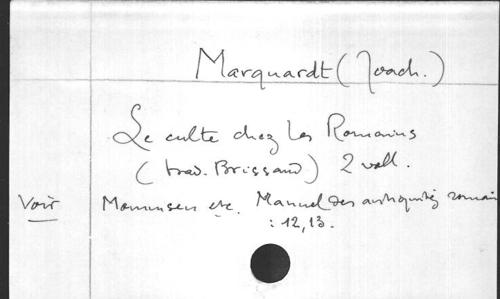 Marquardt (Joach.)
Le culte chez les Romains
(trad. Brissaud) 2 voll.
Voir Mommsen etc. Manuel des antiquités romain
: 12, 13.